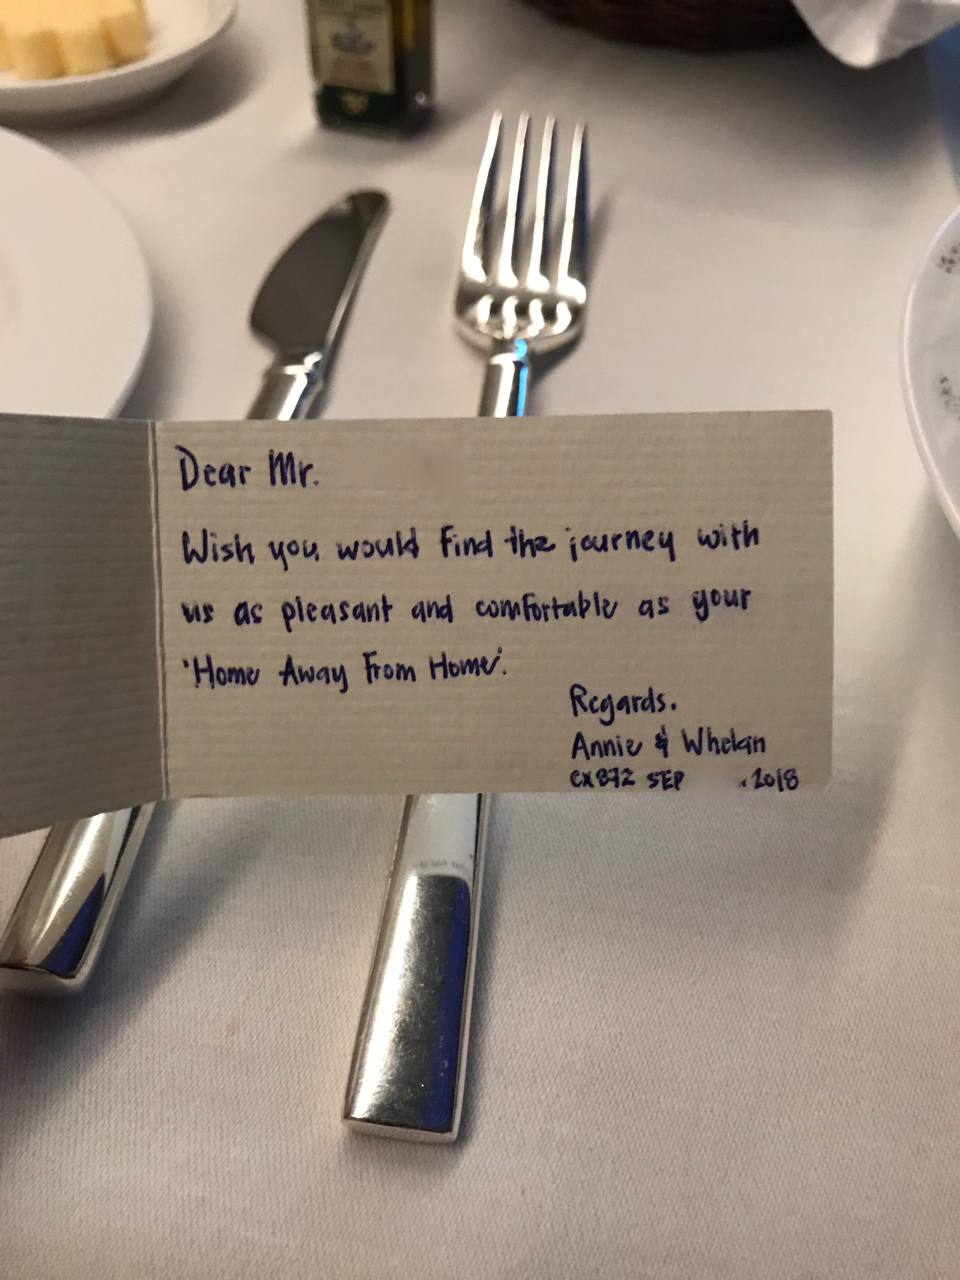 Dear Mr.
Wish you would find the journey with
us as pleasant and comfortable as your
'Home Away From Home'.
Regards.
Annie & Whelan
CX872 SEP . 2018